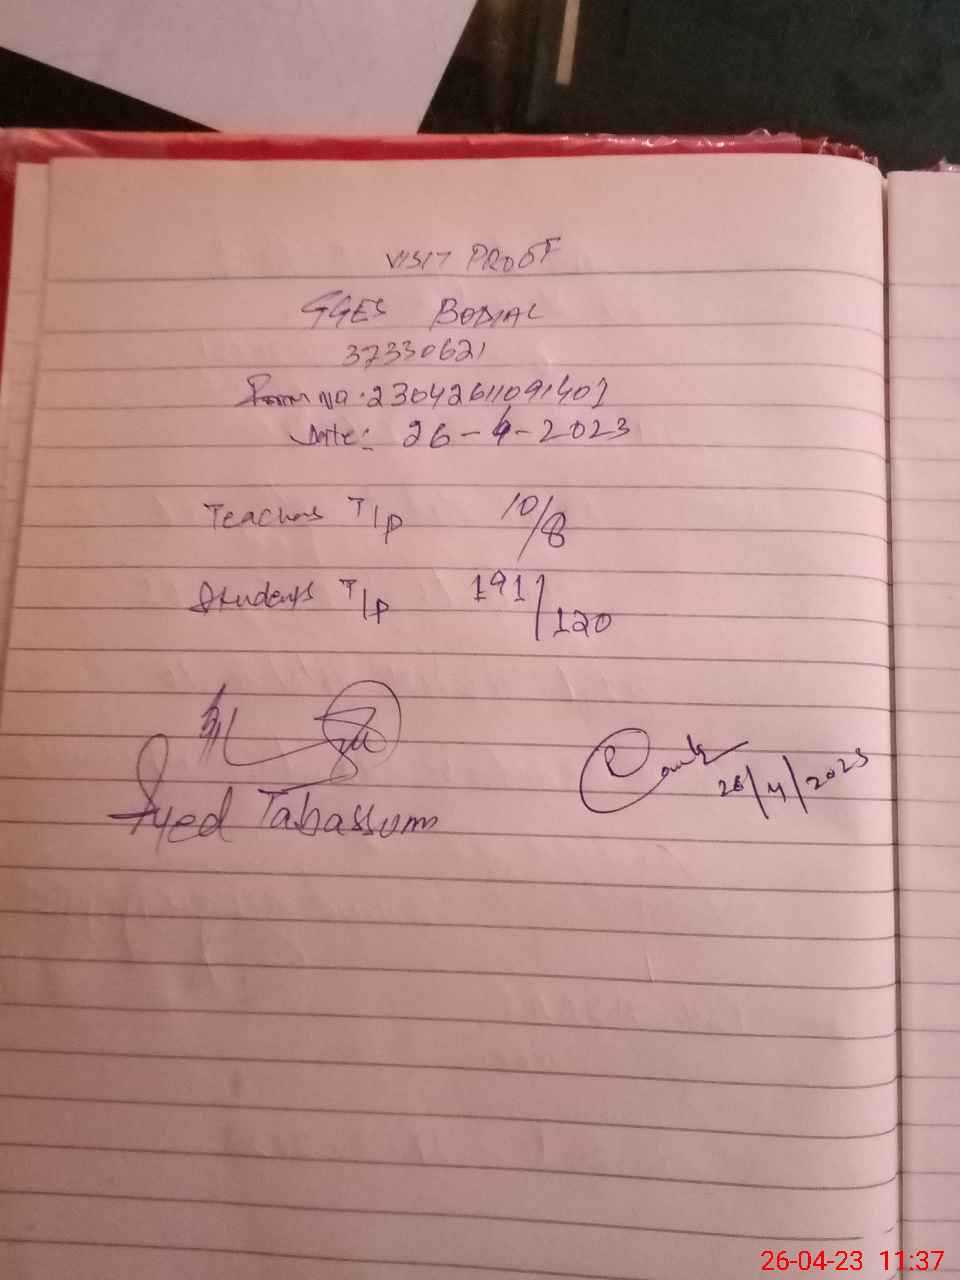 VISIT PROOF
GGES BODIAL
37330621
Form No: 23042611091401
Date: 26-4-2023
Teachers T/P 10/8
Students T/P 191/120
Syed Tabassum
26/4/2023
26-04-23 11:37